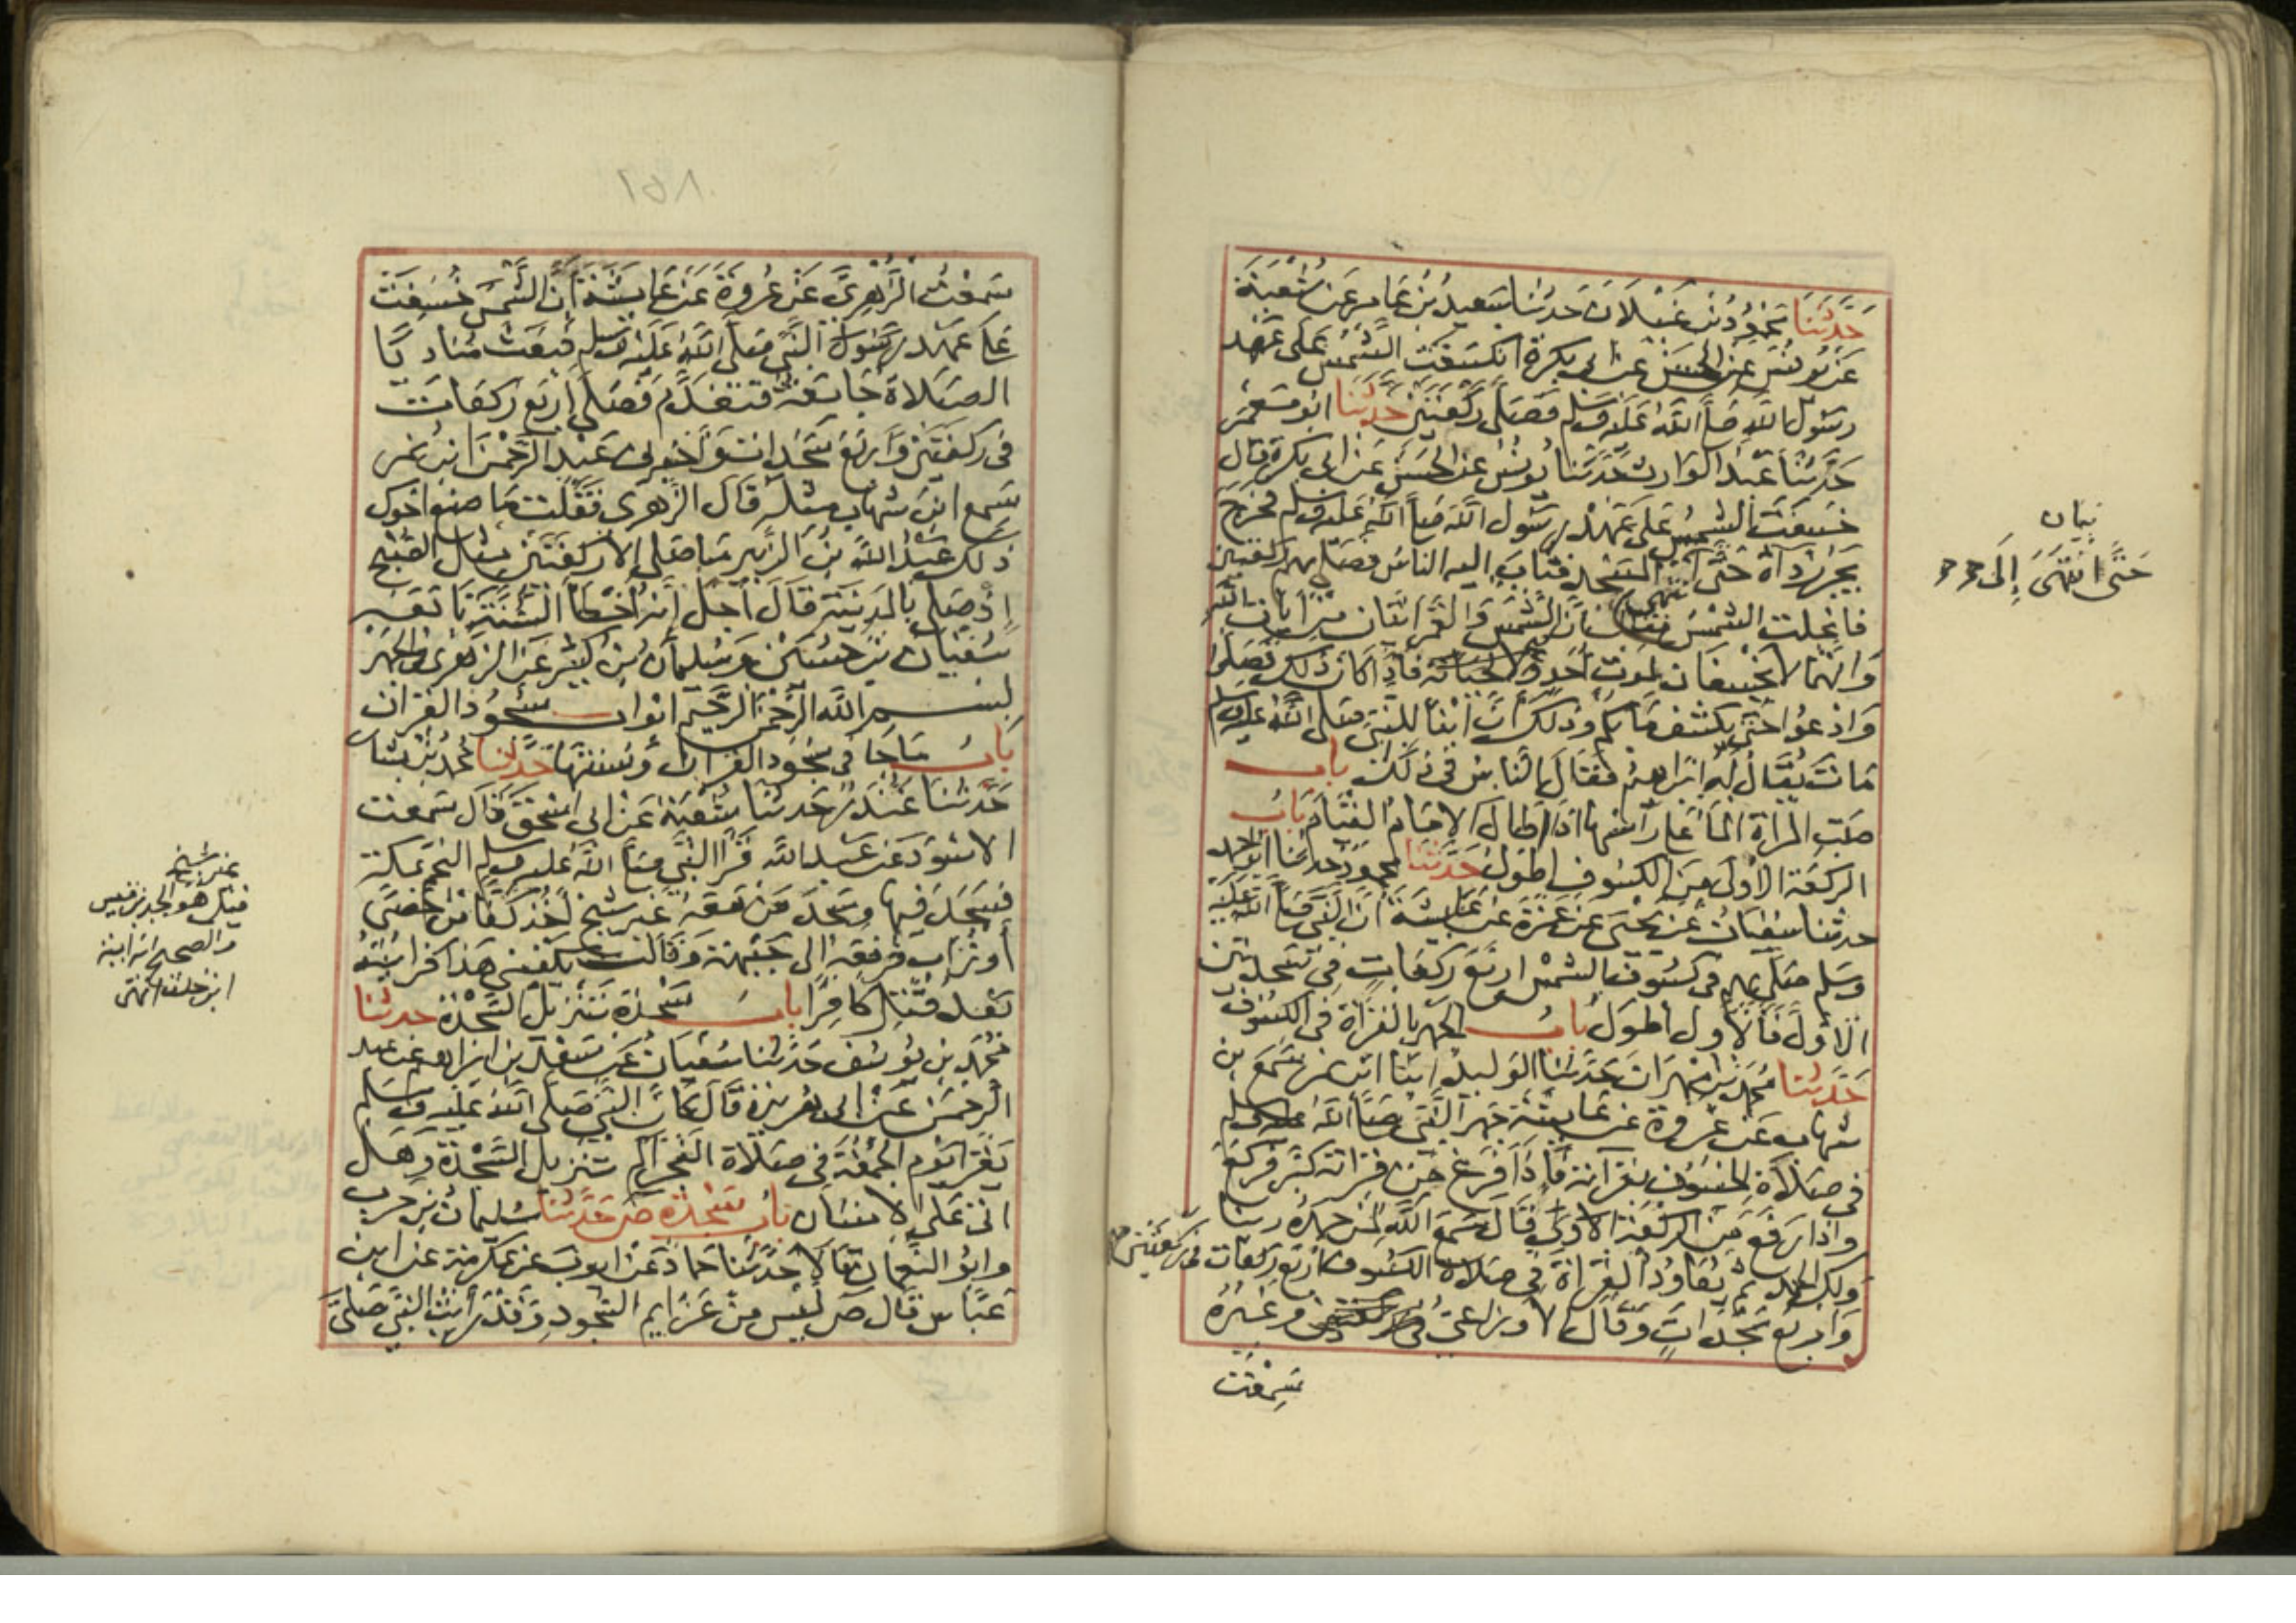 حَدَّثَنَا محمود بن غيلان حدثنا سعيد بن عامر عن شعبة
عن يونس عن الحسن عن ابي بكرة انكسفت الشمس على عهد
رسول الله صلى الله عليه وسلم فصلى ركعتين حدثنا ابو معمر
حدثنا عبد الوارث حدثنا يونس عن الحسن عن ابي بكرة قال
خسفت الشمس على عهد رسول الله صلى الله عليه وسلم فخرج
يجر رداءه حتى انتهى المسجد فثاب اليه الناس فصلى بهم ركعتين
فانجلت الشمس فقال ان الشمس والقمر ايتان من ايات الله
وانهما لا يخسفان لموت احد ولا لحياته فاذا كان ذلك فصلوا
وادعوا حتى يكشف ما بكم وذلك ان ابنا للنبي صلى الله عليه وسلم
مات يقال له ابراهيم فقال الناس في ذلك باب
صب المراة الما على راسها اذا اطال الامام القيام باب
الركعة الاولى من الكسوف اطول حدثنا محمود حدثنا ابو احمد
حدثنا سفيان عن يحيى عن عمرة عن عايشة ان النبي صلى الله عليه
وسلم صلى بهم في كسوف الشمس اربع ركعات في سجدتين
الاول فالاول اطول باب الجهر بالقراة في الكسوف
حدثنا محمد بن مهران حدثنا الوليد ابنا ابن نمر سمع بن
شهاب عن عروة عن عايشة جهر النبي صلى الله عليه وسلم
في صلاة الخسوف بقراته فاذا فرغ من قراته كبر فركع
واذا رفع من الركعة الاولى قال سمع الله لمن حمده ربنا
ولك الحمد ثم يعاود القراة في صلاة الكسوف اربع ركعات في ركعتين
واربع سجدات وقال الاوزاعي وغيره
سمعت
بيان
حتى انتهى إلى
سمعت الزهري عن عروة عن عايشة ان الشمس خسفت
على عهد رسول النبي صلى الله عليه وسلم فبعث مناديا
الصلاة جامعة فتقدم فصلى اربع ركعات
في ركعتين واربع سجدات واخبرني عبد الرحمن ابن نمر
سمع ابن شهاب مثله قال الزهري فقلت ما صنع اخوك
ذلك عبد الله بن الزبير ما صلى الا ركعتين مثل الصبح
اذ صلى بالمدينة قال اجل انه اخطا السنة تابعه
سفيان بن حسين وسليمان بن كثير عن الزهري في الجهر
بسم الله الرحمن الرحيم ابواب سجود القران
باب ما جا في سجود القران وسنتها حدثنا محمد بن بشار
حدثنا غندر حدثنا شعبة عن ابي اسحق قال سمعت
الاسود عن عبد الله قرا النبي صلى الله عليه وسلم النجم بمكة
فسجد فيها وسجد من معه غير شيخ اخذ كفا من حصى
او تراب فرفعه الى جبهته وقال يكفيني هذا فرايته
بعد قتل كافرا باب سجدة تنزيل السجدة حدثنا
محمد بن يوسف حدثنا سفيان عن سعد بن ابراهيم عن عبد
الرحمن عن ابي هريرة قال كان النبي صلى الله عليه وسلم
يقرا يوم الجمعة في صلاة الفجر الم تنزيل السجدة وهل
اتى على الانسان باب سجدة ص حدثنا سليمان بن حرب
وابو النعمان قالا حدثنا حماد عن ايوب عن عكرمة عن ابن
عباس قال ص ليس من عزايم السجود وقد رايت النبي صلى
غير شيخ
قيل هو الجد بن قيس
والصحيح انه امية
ابن خلف انتهى